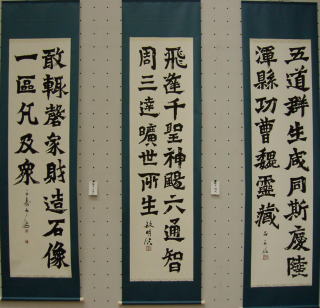 五道群生咸同斯慶陸
渾縣功曹魏靈藏
飛逢千聖神颺六通智
周三達曠世所生
敢輟磬家財造石像
一區凡及衆